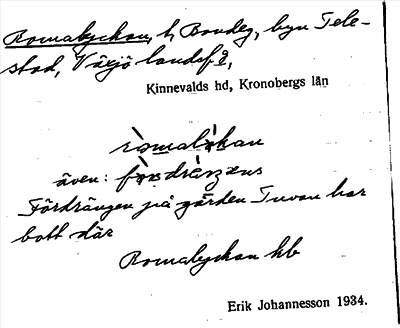 Romalyckan, t, Bondeg, byn Tele-
stad, Växjö landsf,
Kinnevalds hd, Kronobergs län
även:
Fördrängen på gården Tuvan har
bott där
Romalyckan hb
Erik Johannesson 1934.